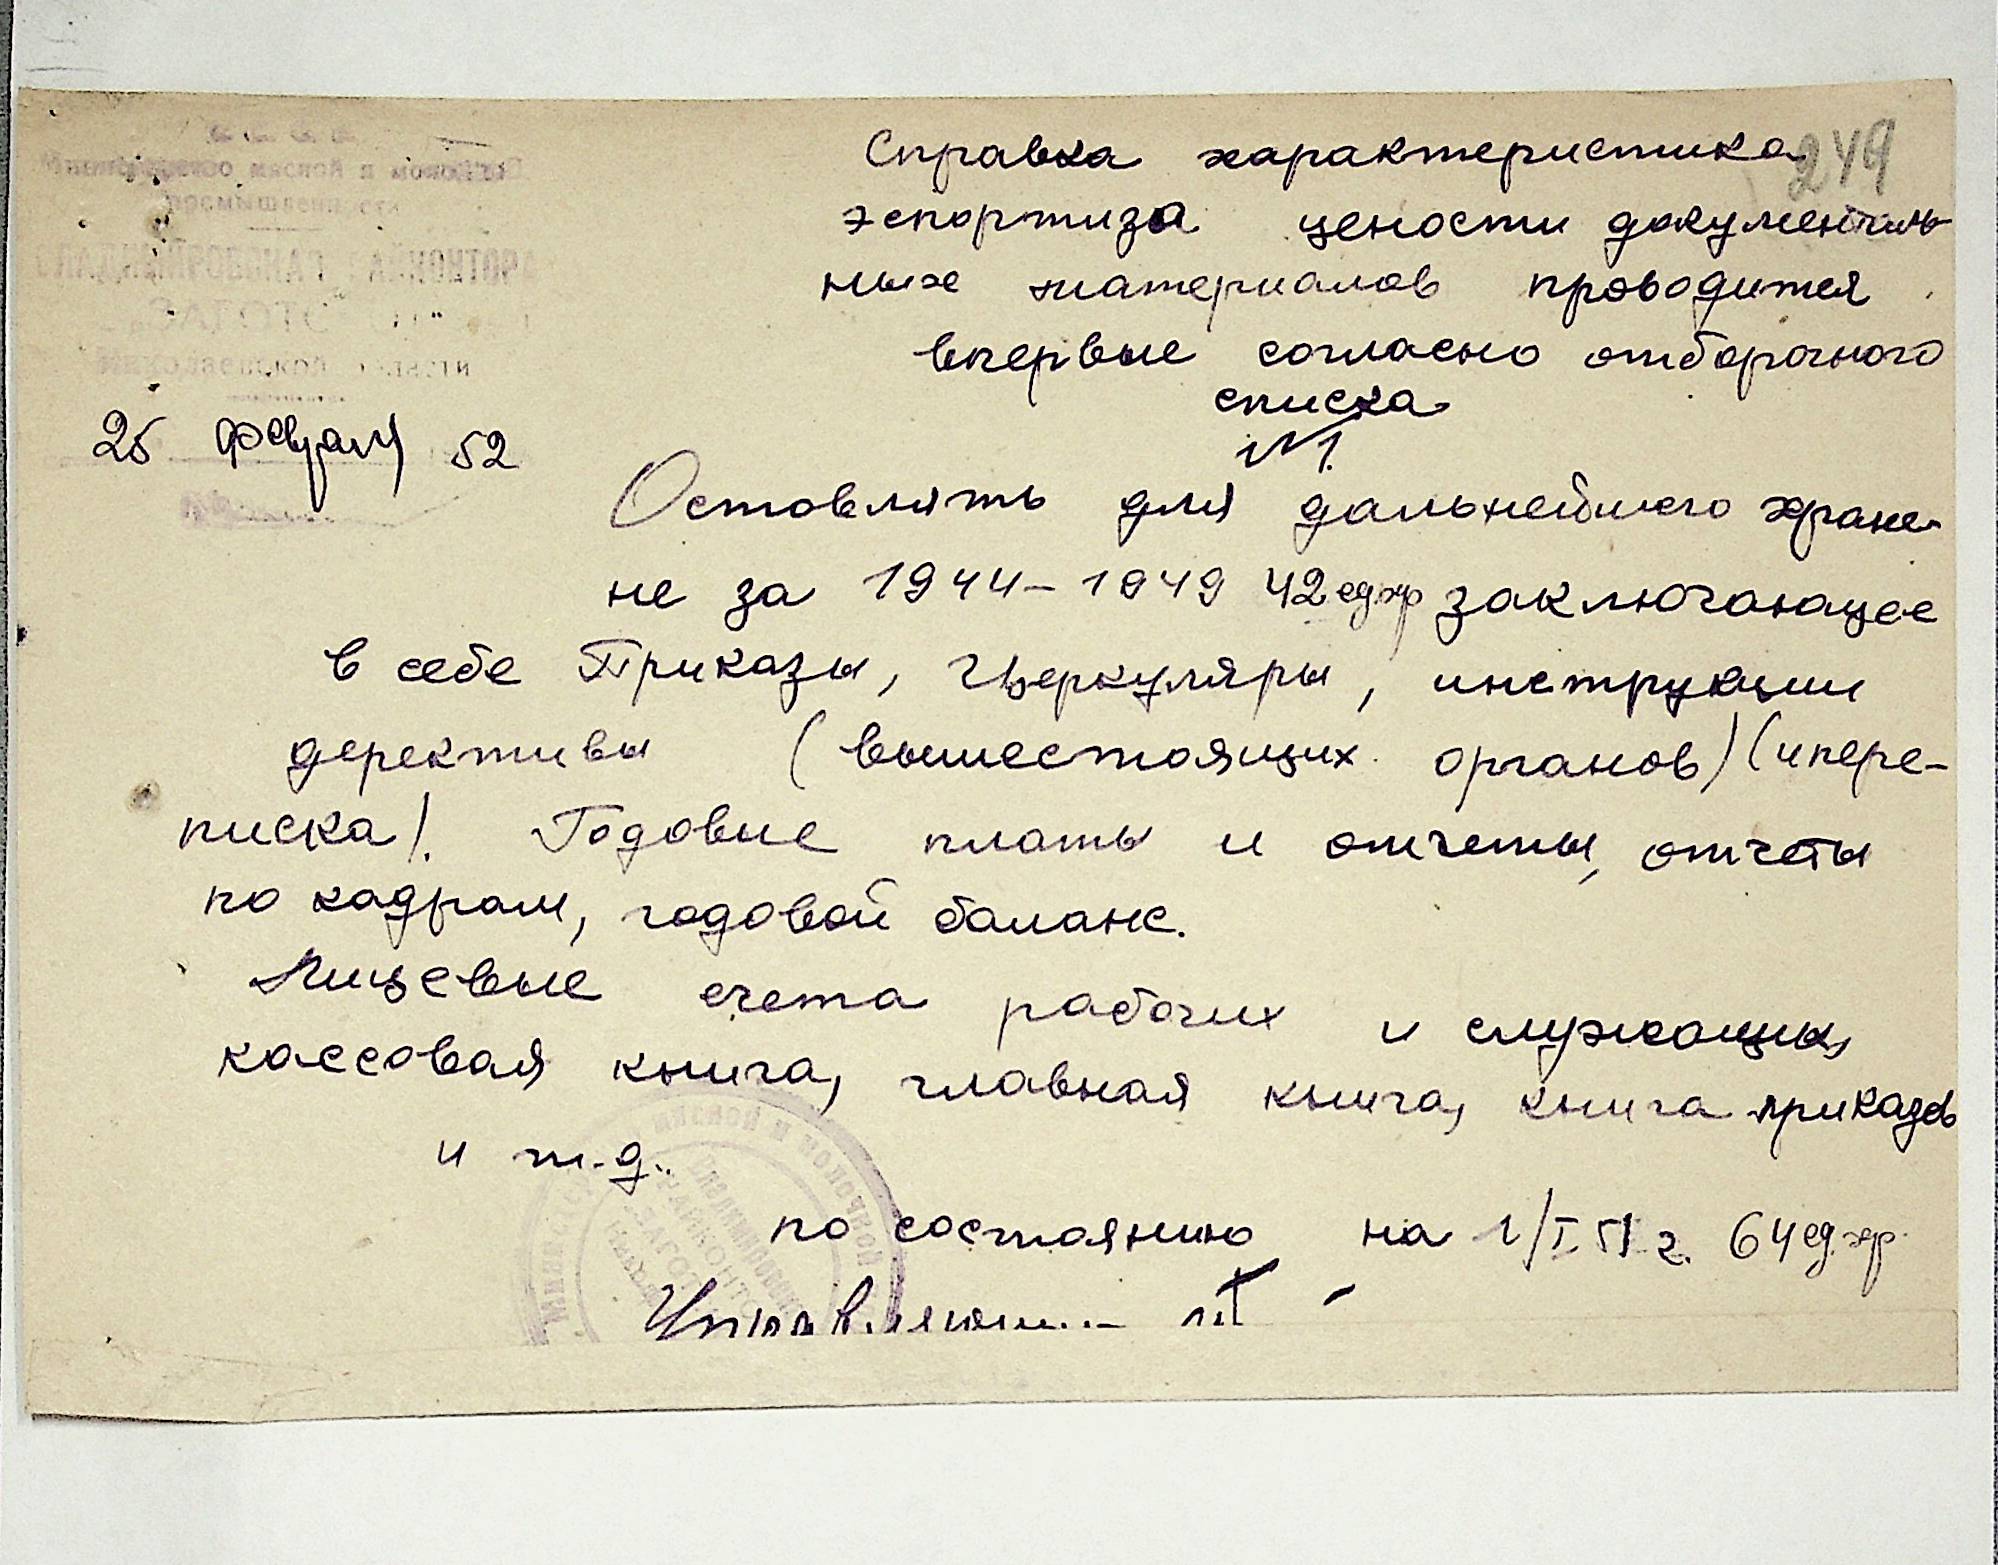 С С С Р
Министерство мясной и молочной
промышленности
ВЛАДИМИРОВСКАЯ РАЙКОНТОРА
Николаевской области
25 февраля 52
249
Справка характеристика
эспортиза цености документаль
ных материалов проводится
впервые согласно отборочного
списка
№1.
Оставлять для дальнейшего хране-
не за 1944-1949 42 ед хр заключающее
в себе Приказы, церкуляры, инструкции
дерективы (вышестоящих органов) (и пере-
писка). Годовые планы и отчеты, отчеты
по кадрам, годовой баланс.
Лицевые счета рабочих и служащих,
кассовая книга, главная книга, книга приказов
и т.д.
по состоянию на 1/I 51 г. 64 ед. хр.